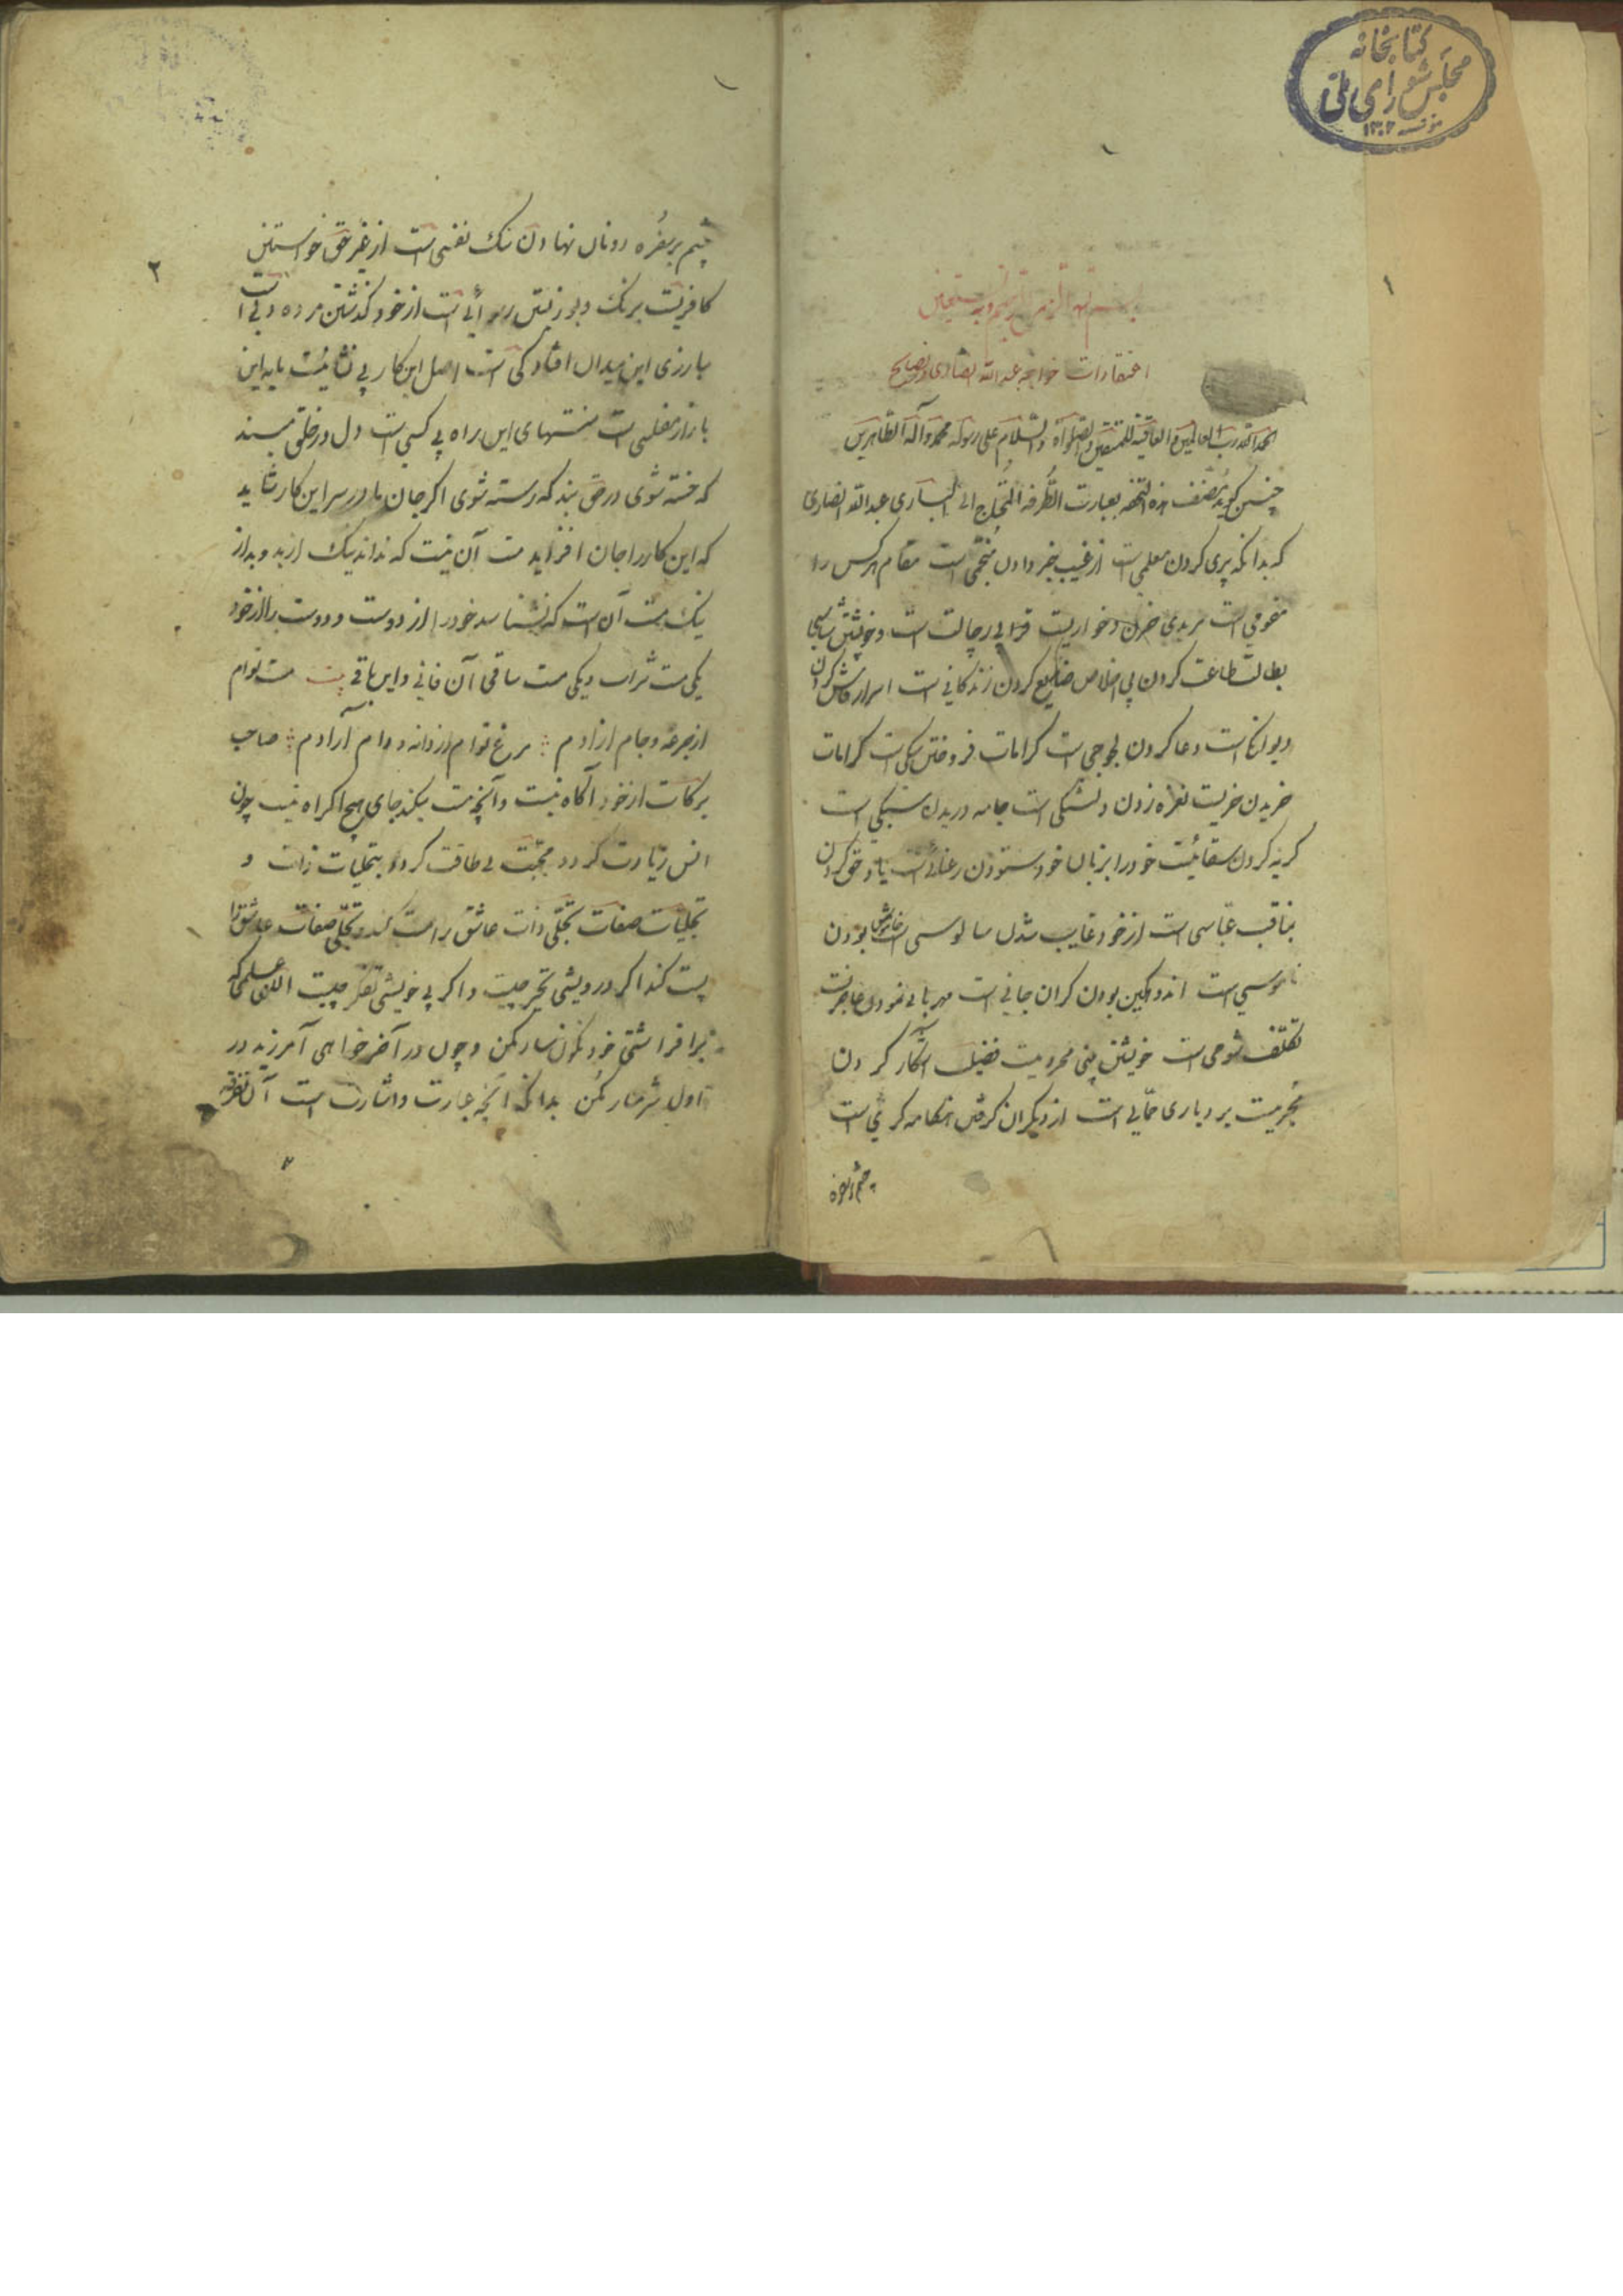 کتابخانه
مجلس شورای ملی
مؤسسه ۱۳۰۲
۱
بسم الله الرحمن الرحیم وبه نستعین
اعتقادات خواجه عبدالله انصاری و نصایح
الحمدلله رب العالمین والعاقبة للمتقین والصلواة والسلام علی رسوله محمد وآله الطاهرین
چنین کوید مصنف هذه التحفه بعبارت الطرفه المحتاج الی الباری عبدالله انصاری
که بدانکه پری کردن معلمی است از غیب خبر دادن منجمی است مقام هرکس را
است مریدی خریدن و خواریست و خویشتن شناسی
بطالت طاعت کردن بی اخلاص ضایع کردن زندکانی است اسرار فاش کردن
دیوانکی است دعا کردن لجوجی است کرامات فروختن سکی است کرامات
خریدن خریست نعره زدن دلتنکی است جامه دریدن سبکی است
کریه کردن سقائیست خود را بزبان خود ستودن رعنائیست یاد حق کردن
است از خود غایب شدن سالوسی است خاموش بودن
ناموسی است اندوهکین بودن کران جانی است مهربانی نمودن عاجزیست
تکلف شومی است خویشتن بینی محرومیت فضیلت انکار کردن
مجرمیست بردباری حمالی است از دیکران کرفتن هنکامه کریی است
چشم بر سفره
۲
چشم بر سفره دونان نهادن سک نفسی است از غیر حق خواستن
کافریست برنک و بو زیستن رسوائی است از خود کذشتن مرده دلی است
مبارزی این میدان افتادکی است اصل این کار بی نشانیست پایه این
بازار مفلسی است منتهای این راه بی کسی است دل در خلق مبند
که خسته شوی در حق بند که رسته شوی اکر جان ما در سر این کار شاید
که این کار را جان افزاید مست آن نیست که نداند نیک از بد و بد از
نیک مست آن است که نشناسد خود را از دوست و دوست را از خود
یکی مست شراب و یکی مست ساقی آن فانی و این باقی بیت مست توام
از جرعه و جام ازادم مرغ توام از دانه و دام آزادم صاحب
برکات از خود آکاه نیست و آنچه مست میکند جای هیچ اکراه نیست چون
انس زیادت کردد محبت بی طاقت کردد بتجلیات ذات و
تجلیات صفات تجلی ذات عاشق را مست کند و تجلی صفات عاشق را
پست کند اکر درویشی تحیر چیست و اکر بی خویشی تفکر چیست الهی علمی که
برافراشتی خود نکون سار مکن و چون در آخر خواهی آمرزید در
اول شرمسار مکن بدانکه آنچه عبارت و اشارت است آن تفرقه